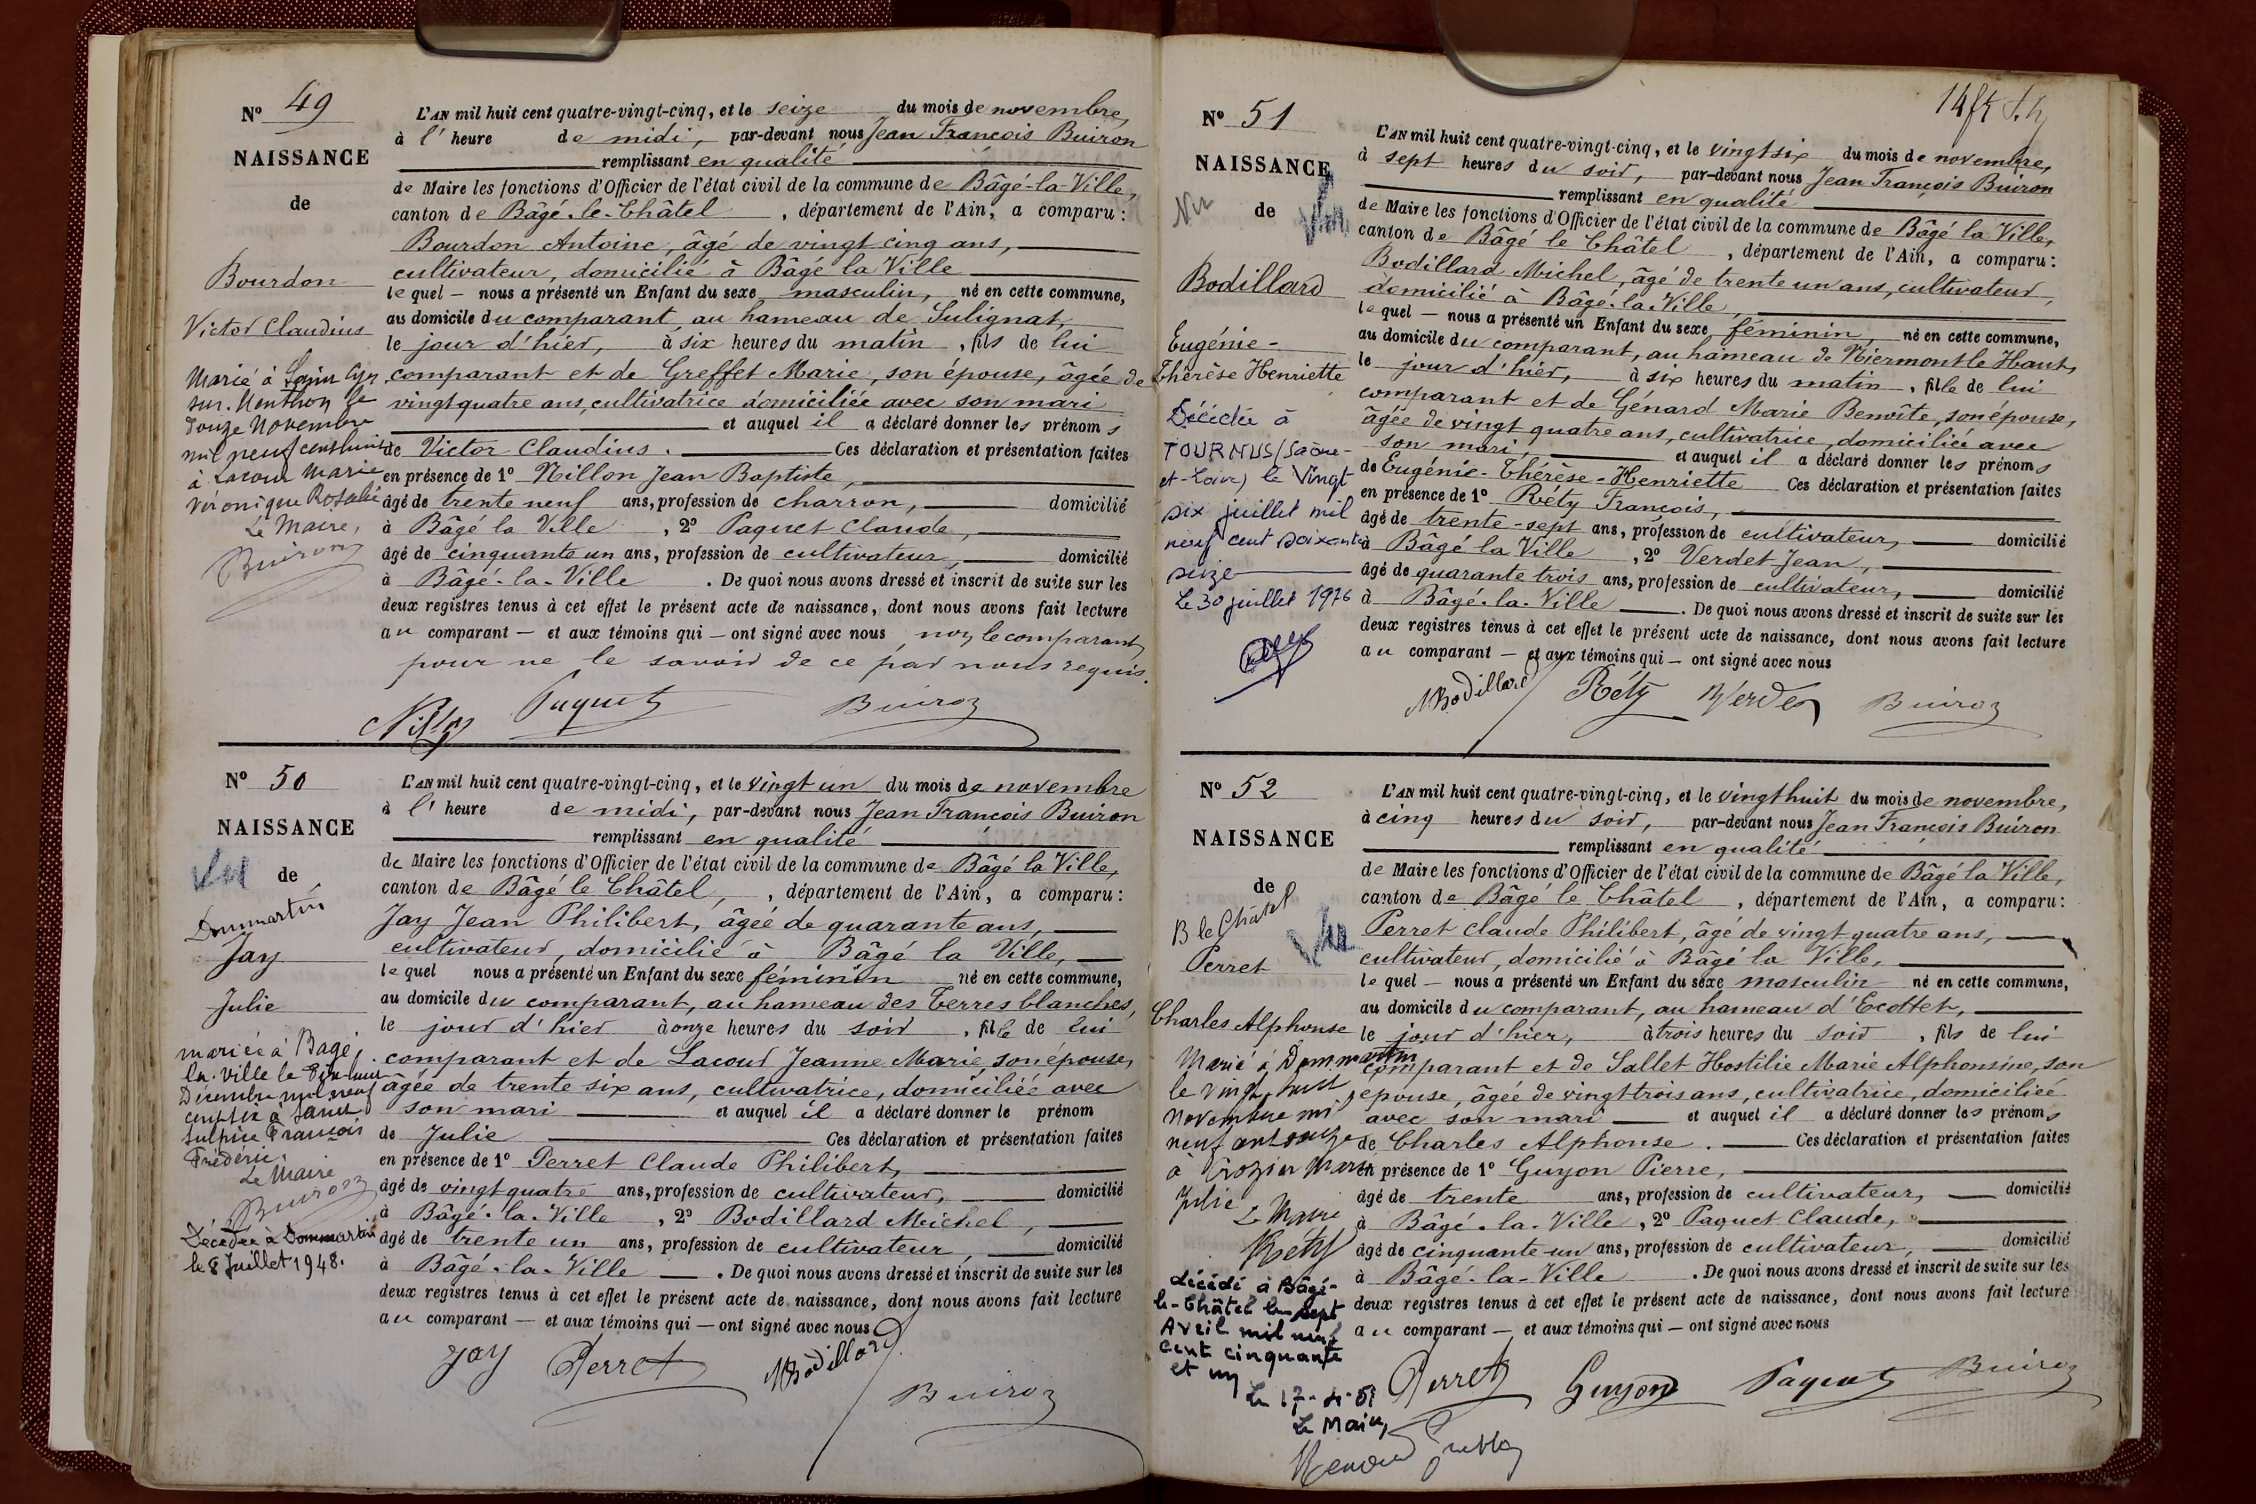 Nº 49
NAISSANCE
de
Bourdon
Victor Claudius
Marié à Saint Cyr
sur-Menthon le
Douze Novembre
mil neuf cent huit
à Lacour Marie
Véronique Rosalie
Le Maire,
Buiron
L'AN mil huit cent quatre-vingt-cinq, et le seize du mois de novembre,
à l'heure de midi, par-devant nous Jean François Buiron
remplissant en qualité
de Maire les fonctions d'Officier de l'état civil de la commune de Bâgé-la-Ville,
canton de Bâgé-le-Châtel, département de l'Ain, a comparu :
Bourdon Antoine, âgé de vingt cinq ans,
cultivateur, domicilié à Bâgé la Ville
lequel — nous a présenté un Enfant du sexe masculin, né en cette commune,
au domicile du comparant, au hameau de Sulignat,
le jour d'hier, à six heures du matin, fils de lui
comparant et de Greffet Marie, son épouse, âgée de
vingt quatre ans, cultivatrice domiciliée avec son mari
et auquel il a déclaré donner les prénoms
de Victor Claudius. Ces déclaration et présentation faites
en présence de 1º Nillon Jean Baptiste,
âgé de trente neuf ans, profession de charron, domicilié
à Bâgé la Ville, 2º Paquet Claude,
âgé de cinquante un ans, profession de cultivateur, domicilié
à Bâgé-la-Ville. De quoi nous avons dressé et inscrit de suite sur les
deux registres tenus à cet effet le présent acte de naissance, dont nous avons fait lecture
au comparant — et aux témoins qui — ont signé avec nous, non le comparant
pour ne le savoir de ce par nous requis.
Nillon Paquet Buiron
Nº 50
NAISSANCE
Vu de
Dommartin
Jay
Julie
mariée à Bagé
la-Ville le Dix-huit
Décembre mil neuf
cent six à Janet
Sulpice François
Frédéric.
Le Maire
Buiron
Décédée à Dommartin
le 8 Juillet 1948.
L'AN mil huit cent quatre-vingt-cinq, et le vingt un du mois de novembre
à l'heure de midi, par-devant nous Jean François Buiron
remplissant en qualité
de Maire les fonctions d'Officier de l'état civil de la commune de Bâgé la Ville,
canton de Bâgé le Châtel, département de l'Ain, a comparu :
Jay Jean Philibert, âgée de quarante ans,
cultivateur, domicilié à Bâgé la Ville,
lequel nous a présenté un Enfant du sexe féminin né en cette commune,
au domicile du comparant, au hameau des Terres blanches,
le jour d'hier à onze heures du soir, fille de lui
comparant et de Lacour Jeanne Marie, son épouse,
âgée de trente six ans, cultivatrice, domiciliée avec
son mari et auquel il a déclaré donner le prénom
de Julie Ces déclaration et présentation faites
en présence de 1º Perret Claude Philibert,
âgé de vingt quatre ans, profession de cultivateur, domicilié
à Bâgé-la-Ville, 2º Bodillard Meichel,
âgé de trente un ans, profession de cultivateur, domicilié
à Bâgé-la-Ville —. De quoi nous avons dressé et inscrit de suite sur les
deux registres tenus à cet effet le présent acte de naissance, dont nous avons fait lecture
au comparant — et aux témoins qui — ont signé avec nous
Jay Perret MBodillard
Buiron
Nº 51
NAISSANCE
Vu de Vu
Bodillard
Eugénie-
Thérèse Henriette
Décédée à
TOURNUS (Saône-
et-Loire) le Vingt
six juillet mil
neuf cent soixante
seize
Le 30 juillet 1976
L'AN mil huit cent quatre-vingt-cinq, et le vingt six du mois de novembre,
à sept heures du soir, par-devant nous Jean François Buiron
remplissant en qualité
de Maire les fonctions d'Officier de l'état civil de la commune de Bâgé la Ville,
canton de Bâgé le Châtel, département de l'Ain, a comparu :
Bodillard Michel, âgé de trente un ans, cultivateur,
domicilié à Bâgé-la-Ville,
lequel — nous a présenté un Enfant du sexe féminin, né en cette commune,
au domicile du comparant, au hameau de Niermont le Haut,
le jour d'hier, à six heures du matin, fille de lui
comparant et de Génard Marie Benoîte, son épouse,
âgée de vingt quatre ans, cultivatrice, domiciliée avec
son mari, et auquel il a déclaré donner les prénoms
de Eugénie-Thérèse-Henriette Ces déclaration et présentation faites
en présence de 1º Réty François,
âgé de trente-sept ans, profession de cultivateur, domicilié
à Bâgé la Ville, 2º Verdet Jean,
âgé de quarante trois ans, profession de cultivateur, domicilié
à Bâgé-la-Ville. De quoi nous avons dressé et inscrit de suite sur les
deux registres tenus à cet effet le présent acte de naissance, dont nous avons fait lecture
au comparant — et aux témoins qui — ont signé avec nous
MBodillard Réty Verdet Buiron
Nº 52
NAISSANCE
de
B le Châtel Vu
Perret
Charles Alphonse
Marié à Dommartin
le vingt huit
Novembre mil
neuf cent onze
à Brozier Marie
Julie
Le Maire
Réty
Décédé à Bâgé-
le-Châtel le sept
Avril mil neuf
cent cinquante
et un
Le 17-4-51
Le Maire,
L'AN mil huit cent quatre-vingt-cinq, et le vingt huit du mois de novembre,
à cinq heures du soir, par-devant nous Jean François Buiron
remplissant en qualité
de Maire les fonctions d'Officier de l'état civil de la commune de Bâgé la Ville,
canton de Bâgé le Châtel, département de l'Ain, a comparu :
Perret Claude Philibert, âgé de vingt quatre ans,
cultivateur, domicilié à Bâgé la Ville,
lequel — nous a présenté un Enfant du sexe masculin né en cette commune,
au domicile du comparant, au hameau d'Ecottet,
le jour d'hier, à trois heures du soir, fils de lui
comparant et de Sallet Hostilie Marie Alphonsine, son
épouse, âgée de vingt trois ans, cultivatrice, domiciliée
avec son mari et auquel il a déclaré donner les prénoms
de Charles Alphonse. Ces déclaration et présentation faites
en présence de 1º Guyon Pierre,
âgé de trente ans, profession de cultivateur, domicilié
à Bâgé-la-Ville, 2º Paquet Claude,
âgé de cinquante un ans, profession de cultivateur, domicilié
à Bâgé-la-Ville. De quoi nous avons dressé et inscrit de suite sur les
deux registres tenus à cet effet le présent acte de naissance, dont nous avons fait lecture
au comparant — et aux témoins qui — ont signé avec nous
Perret Guyon Paquet Buiron